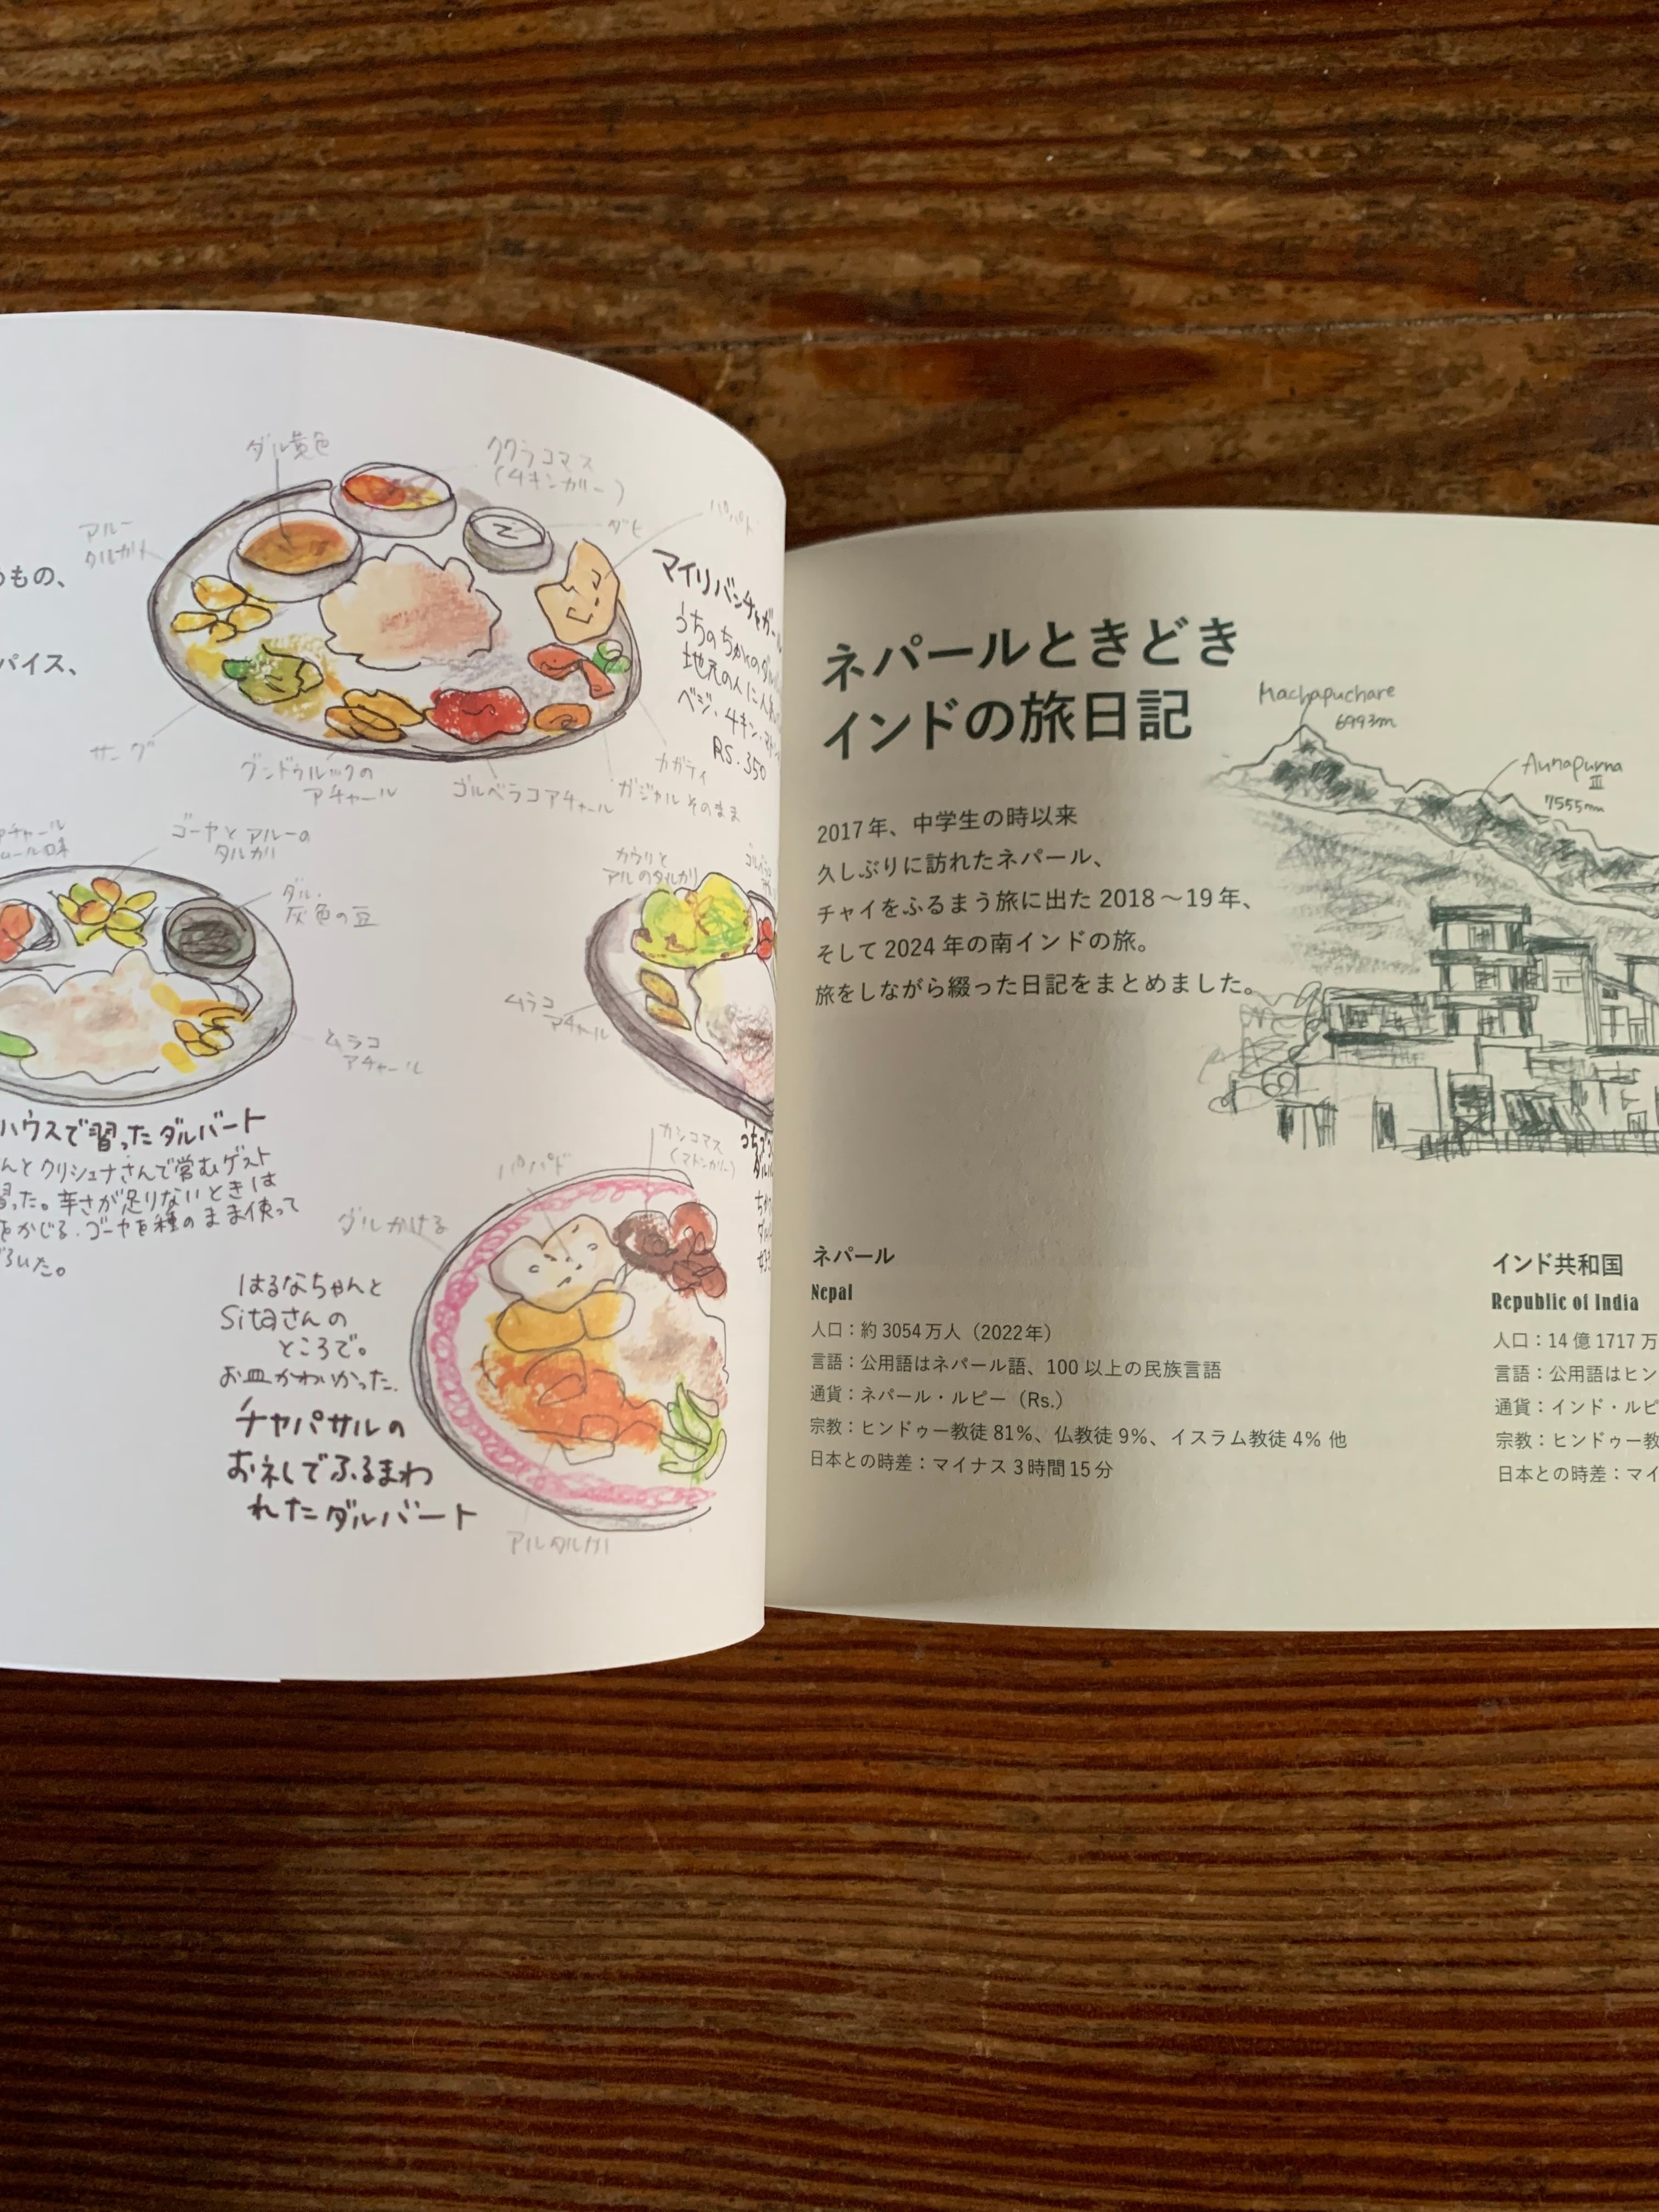 のもの、
パイス、
ダル黄色
ククラコマス
(チキンカリー)
ダヒ
パパド
アルー
タルカリ
マイリバンチャガール
うちのちかくのダル
地元の人に人気
ベジ・チキン・マトン
RS.350
サーグ
グンドゥルックの
アチャール
ゴルベラコアチャール
カガティ
ガジャルそのまま
アチャール
ゴーヤとアルーの
タルカリ
ダル
灰色の豆
ムラコ
アチャール
カウリと
アルのタルカリ
ムラコ
アチャール
ハウスで習ったダルバート
んとクリシュナさんで営むゲスト
習った。辛さが足りないときは
をかじる.ゴーヤを種のまま使って
ろいた。
カシコマス
(マトンカリー)
パパド
ダルかける
はるなちゃんと
Sitaさんの
ところで。
お皿かわいかった.
チャパサルの
お礼でふるまわ
れたダルバート
アルタルカリ
ネパールときどき
インドの旅日記
Machapuchare
6993m
Annapurna
III
7555m
2017年、中学生の時以来
久しぶりに訪れたネパール、
チャイをふるまう旅に出た 2018〜19年、
そして 2024 年の南インドの旅。
旅をしながら綴った日記をまとめました。
ネパール
Nepal
人口：約 3054万人（2022年）
言語：公用語はネパール語、100 以上の民族言語
通貨：ネパール・ルピー（Rs.）
宗教：ヒンドゥー教徒 81%、仏教徒 9%、イスラム教徒 4% 他
日本との時差：マイナス 3時間 15分
インド共和国
Republic of India
人口：14 億 1717 万
言語：公用語はヒン
通貨：インド・ルピ
宗教：ヒンドゥー教
日本との時差：マイ